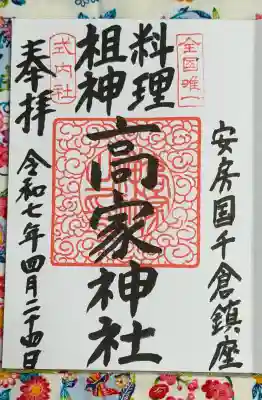 安房国千倉鎮座
全国唯一
料理
祖神
高家神社
式内社
奉拝
令和七年四月二十四日